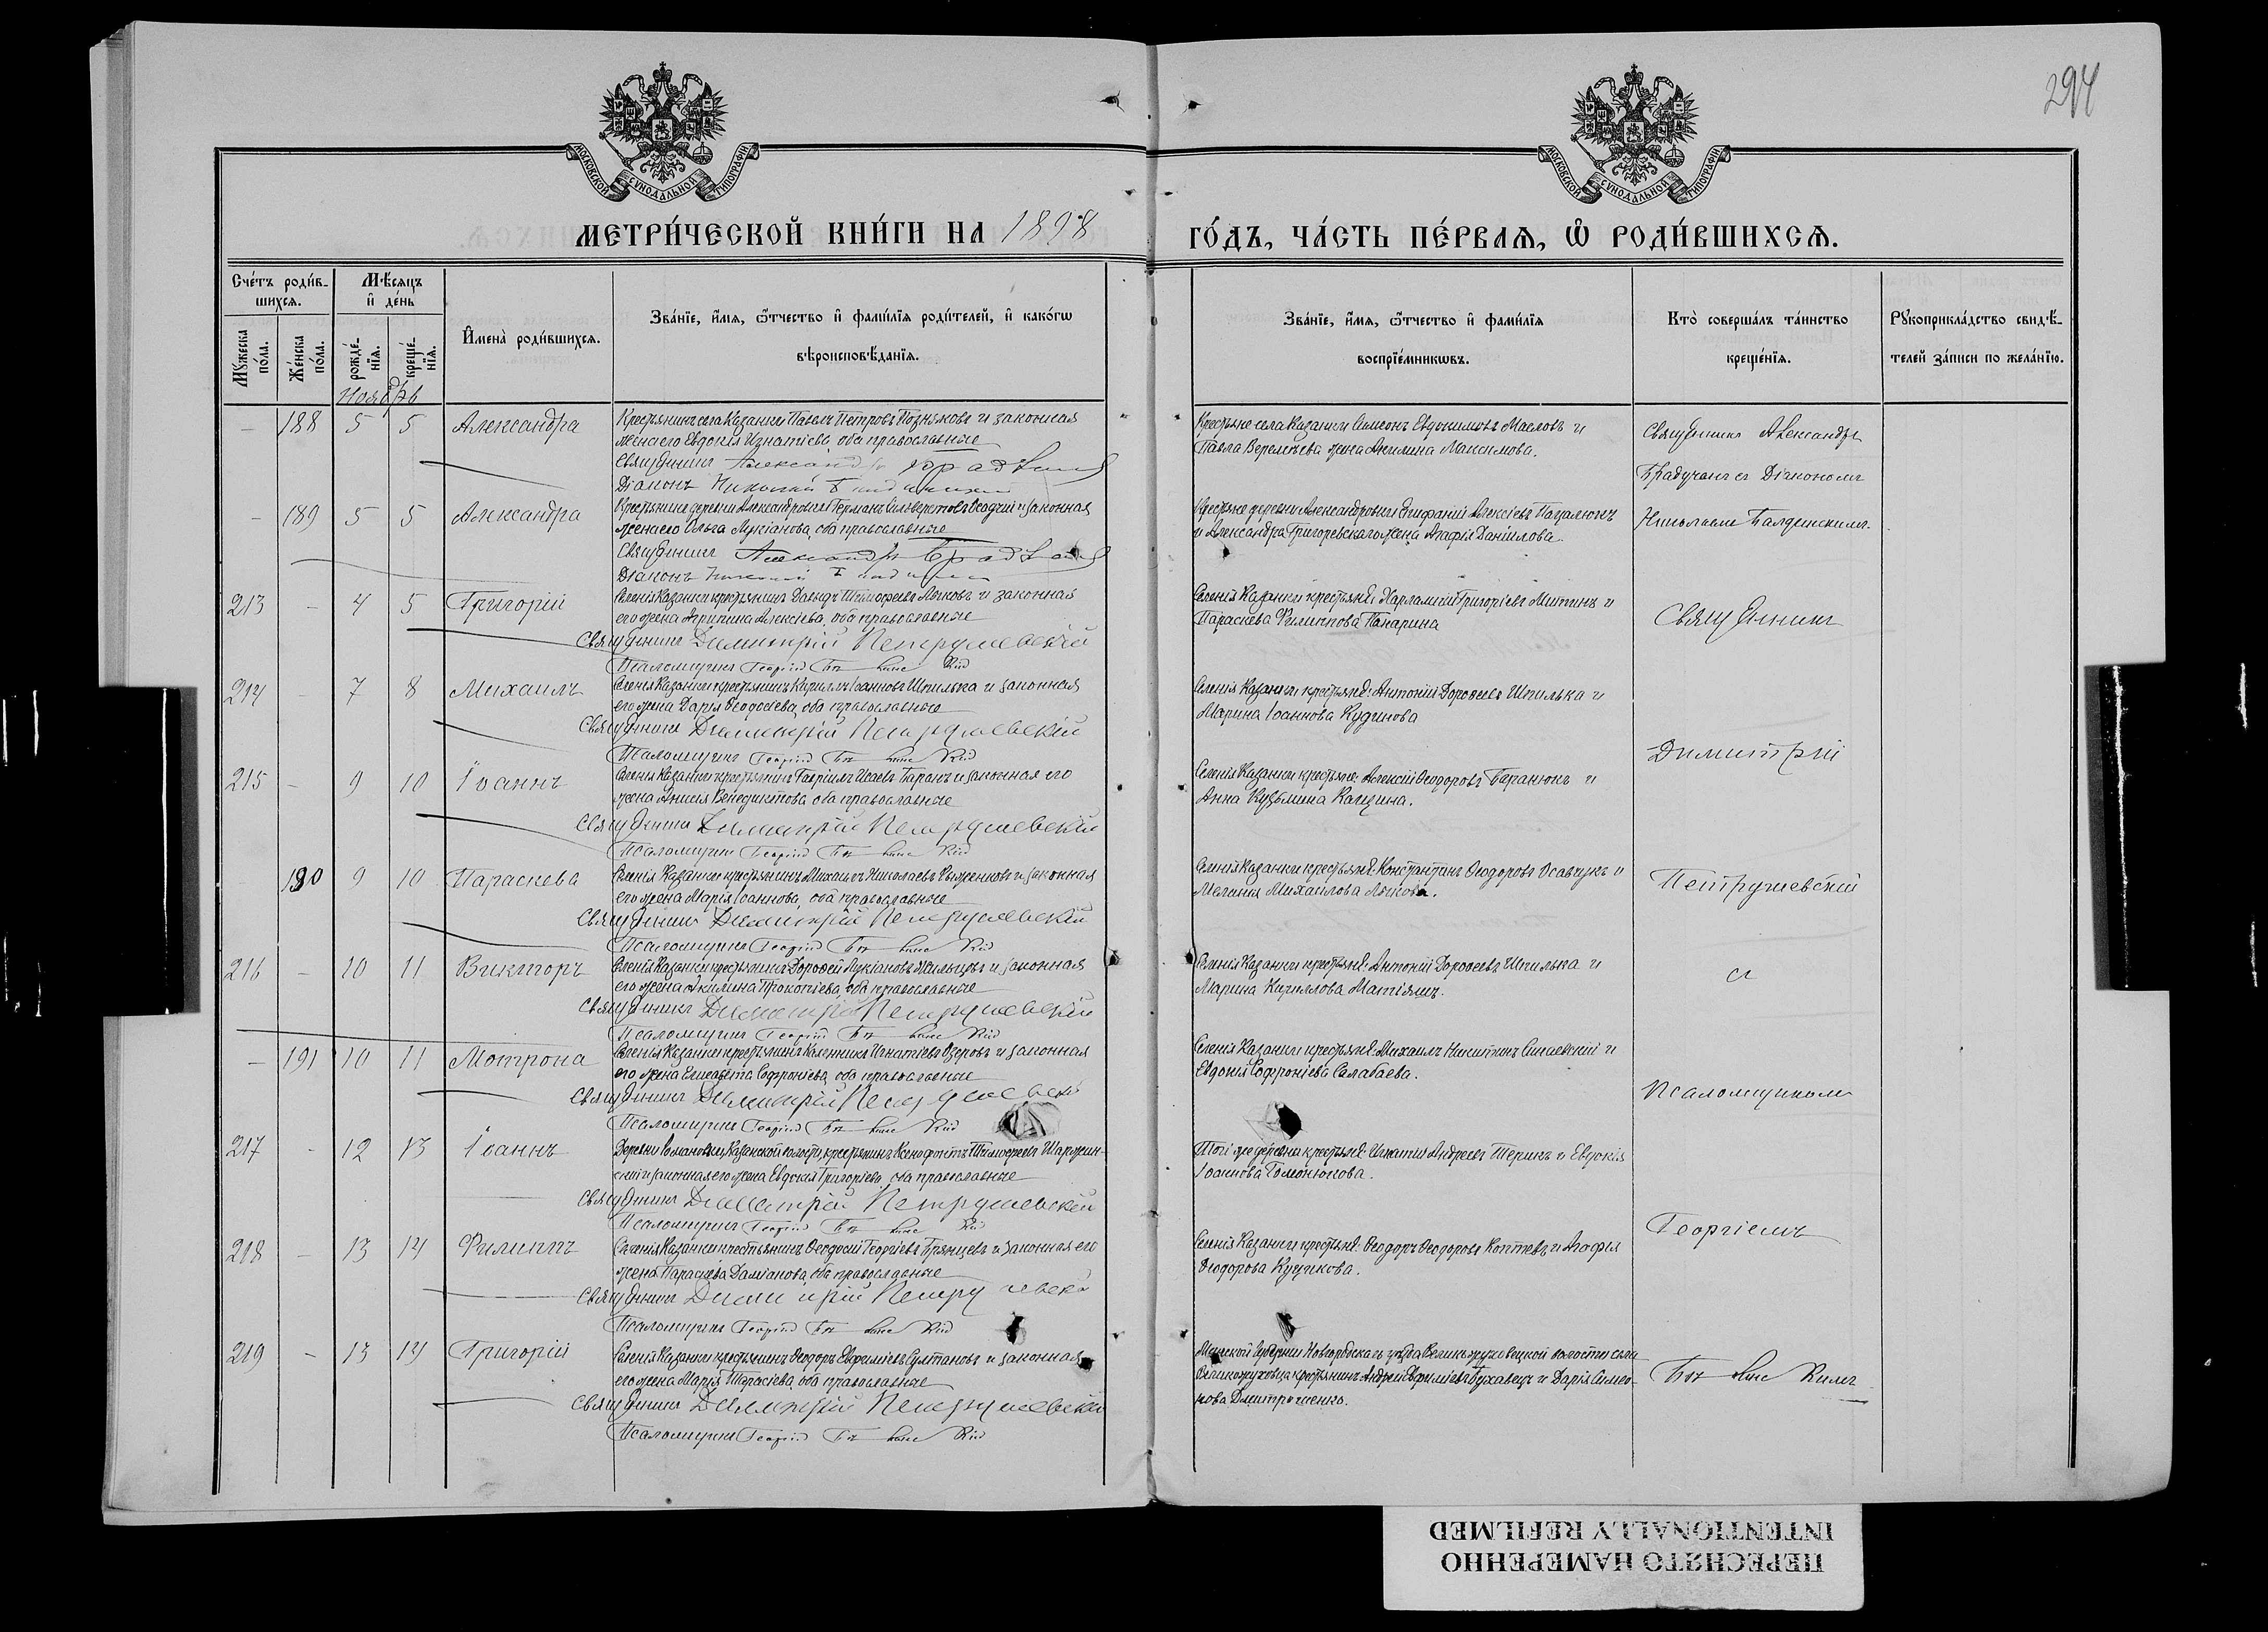 294
МОСКОВСКОЙ СѴНОДАЛЬНОЙ ТИПОГРАФІИ
МОСКОВСКОЙ СѴНОДАЛЬНОЙ ТИПОГРАФІИ
МЕТРИ́ЧЕСКОЙ КНИ́ГИ НА 1898
ГО́ДЪ, ЧА́СТЬ ПЕ́РВАѦ, Ѡ РОДИ́ВШИХСѦ.
Сче́тъ роди́в-
шихсѧ.
Мꙋжеска по́ла.
Же́нска по́ла.
Мѣ́сѧцъ
и де́нь
рожде́-
нїѧ.
креще́-
нїѧ.
Имена̀ роди́вшихсѧ.
Зва́нїе, и́мѧ, ѻ́тчество и фами́лїѧ роди́телей, и како́гѡ
вѣроисповѣ́данїѧ.
Зва́нїе, и́мѧ, ѻ́тчество и фами́лїѧ
воспрїе́мникѡвъ.
Кто̀ соверша́лъ та́инство
креще́нїѧ.
Рꙋкоприкла́дство свидѣ́-
телей за́писи по жела́нїю.
Ноябрь
188 5 5 Александра
Крестьянинъ села Казанки Павелъ Петровъ Позняковъ и законная
жена его Евдокія Игнатіева, оба православные
Священникъ Александръ
Діаконъ Николай
Крестьяне села Казанки Симеонъ Евдокимовъ Масловъ и
Павла Веремѣева жена Акилина Максимова.
Священникъ Александръ
съ Діакономъ
Николаемъ
189 5 5 Александра
Крестьянинъ деревни Александровки Германъ Сильвестровъ Осадчій и законная
жена его Ольга Лукіанова, оба православные
Священникъ Александръ
Діаконъ
Крестьяне деревни Александровки Епифаній Алексіевъ
и Александра Григоревскаго жена Агафія Даніилова.
213 4 5 Григорій
Селенія Казанки крестьянинъ Давидъ Тимофеевъ и законная
его жена Агрипина Алексіева, оба православные
Священникъ Димитрій Петрушевскій
Псаломщикъ Георгій
Селенія Казанки крестьяне: Харлампій Григоріевъ Митинъ и
Параскева Филиппова Панарина
Священникъ
214 7 8 Михаилъ
Селенія Казанки крестьянинъ Кириллъ Іоанновъ Шпилька и законная
его жена Дарія Ѳеодосіева, оба православные
Священникъ Димитрій Петрушевскій
Псаломщикъ Георгій
Селенія Казанки крестьяне: Антоній Дороѳеевъ Шпилька и
Марина Іоаннова Кудинова
Димитрій
215 9 10 Іоаннъ
Селенія Казанки крестьянинъ Гавріилъ Исаевъ Баранъ и законная его
жена Анисія Венедиктова, оба православные
Священникъ Димитрій Петрушевскій
Псаломщикъ Георгій
Селенія Казанки крестьяне: Алексій Ѳеодоровъ Баранюкъ и
Анна Кузьмина
190 9 10 Параскева
Селенія Казанки крестьянинъ Михаилъ Николаевъ и законная
его жена Марія Іоаннова, оба православные
Священникъ Димитрій Петрушевскій
Псаломщикъ Георгій
Селенія Казанки крестьяне: Константинъ Ѳеодоровъ Осавчукъ и
Меланія Михайлова
Петрушевскій
216 10 11 Викторъ
Селенія Казанки крестьянинъ Дороѳей Лукіановъ и законная
его жена Акилина Прокопіева, оба православные
Священникъ Димитрій Петрушевскій
Псаломщикъ Георгій
Селенія Казанки крестьяне: Антоній Дороѳеевъ Шпилька и
Марина Кириллова
съ
191 10 11 Мотрона
Селенія Казанки крестьянинъ Каленникъ Игнатіевъ Озеровъ и законная
его жена Елисавета Софроніева, оба православные
Священникъ Димитрій
Псаломщикъ Георгій
Селенія Казанки крестьяне: Михаилъ Никитинъ Синаевскій и
Евдокія Софроніева Салабаева.
Псаломщикомъ
217 12 13 Іоаннъ
Деревни Романовки, Казанской волости, крестьянинъ Ксенофонтъ Тимоѳеевъ Шаржин-
скій и законная его жена Евдокія Григоріева, оба православные
Священникъ Димитрій Петрушевскій
Псаломщикъ Георгій
Той же деревни крестьяне: Игнатій Андреевъ Терикъ и Евдокія
Іоаннова Гомонюкова.
Георгіемъ
218 13 14 Филиппъ
Селенія Казанки крестьянинъ Ѳеодосій Георгіевъ Брянцевъ и законная его
жена Параскева Даміанова, оба православные
Священникъ Димитрій
Псаломщикъ Георгій
Селенія Казанки крестьяне: Ѳеодоръ Ѳеодоровъ Коптевъ и Агафія
Ѳеодорова Куцикова.
219 13 14 Григорій
Селенія Казанки крестьянинъ Ѳеодоръ Евфиміевъ Султановъ и законная
его жена Марія Тарасіева, оба православные
Священникъ Димитрій Петрушевскій
Псаломщикъ Георгій
Минской губерніи уѣзда волости села
крестьянинъ Андрей Евфиміевъ Бухавецъ и Дарія Симео-
нова Дмитроченко.
ПЕРЕСНЯТО НАМЕРЕННО
INTENTIONALLY REFILMED